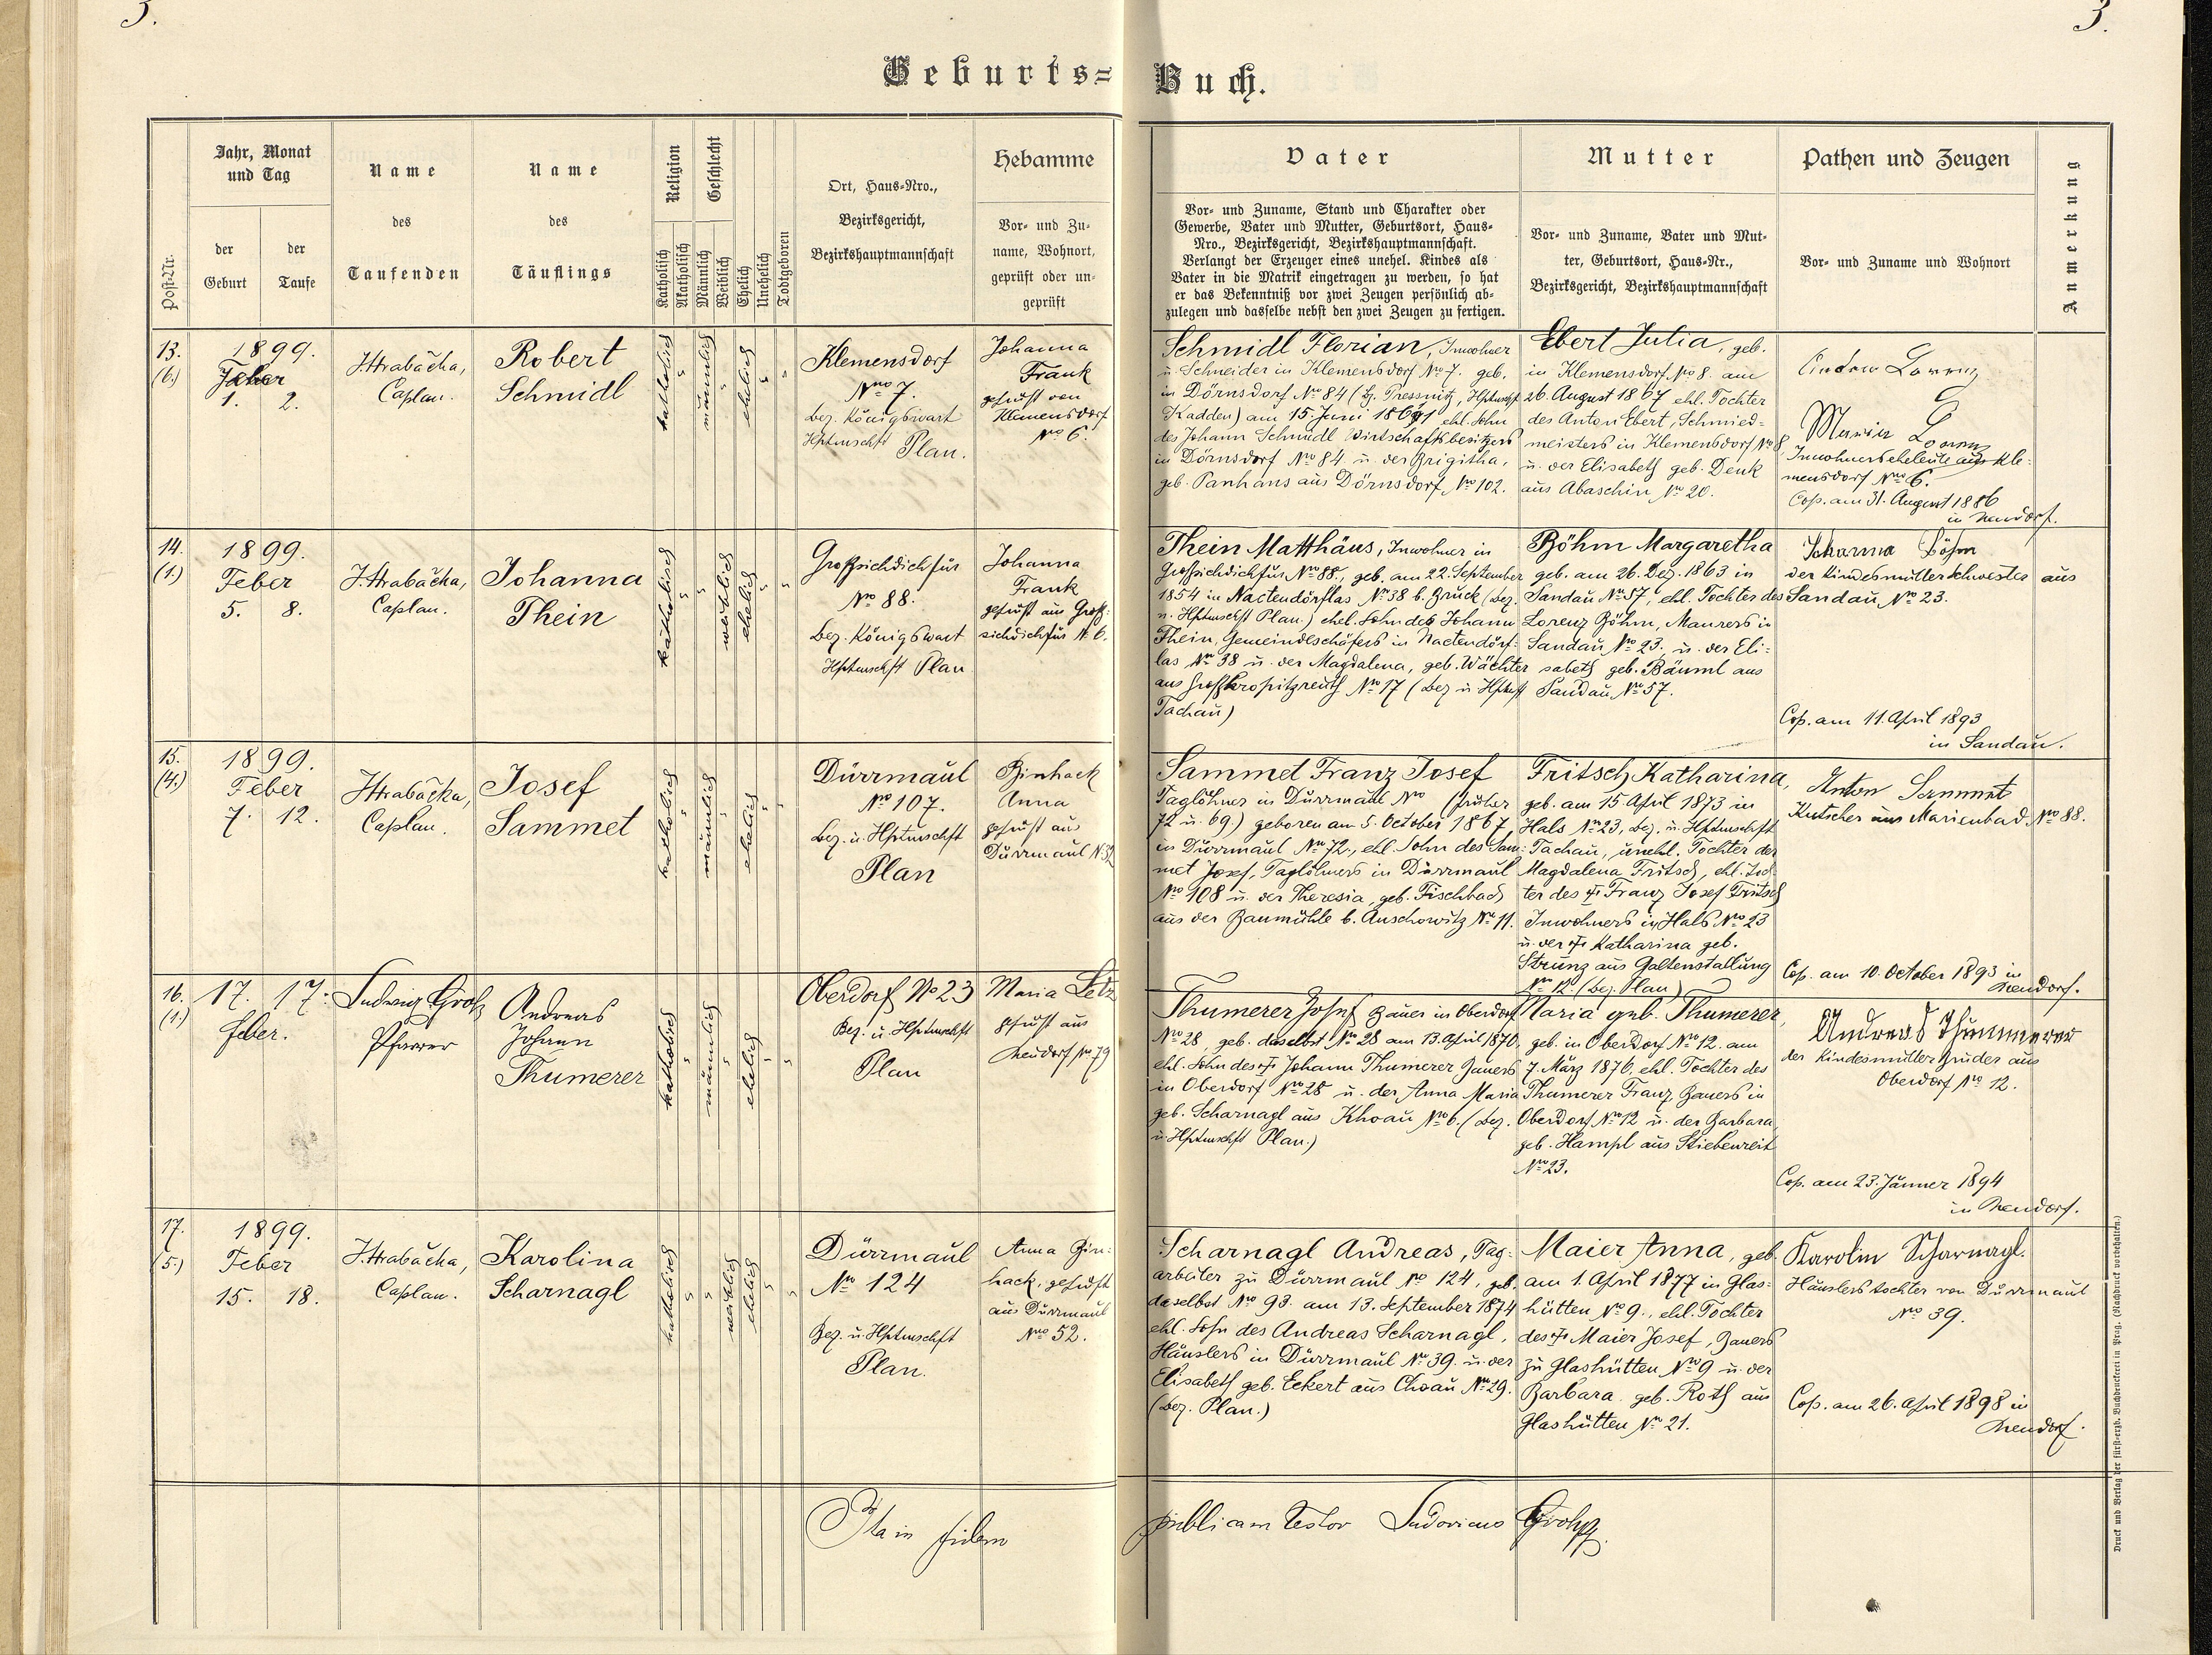 3.
3.
Geburts=
Buch.
Post-Nr.
Jahr, Monat
und Tag
der
Geburt
der
Taufe
Name
des
Taufenden
Name
des
Täuflings
Religion
Katholisch
Akatholisch
Geschlecht
Männlich
Weiblich
Ehelich
Unehelich
Todtgeboren
Ort, Haus-Nro.,
Bezirksgericht,
Bezirkshauptmannschaft
Hebamme
Vor- und Zu-
name, Wohnort,
geprüft oder un-
geprüft
Vater
Vor- und Zuname, Stand und Charakter oder
Gewerbe, Vater und Mutter, Geburtsort, Haus-
Nro., Bezirksgericht, Bezirkshauptmannschaft.
Verlangt der Erzeuger eines unehel. Kindes als
Vater in die Matrik eingetragen zu werden, so hat
er das Bekenntniß vor zwei Zeugen persönlich ab-
zulegen und dasselbe nebst den zwei Zeugen zu fertigen.
Mutter
Vor- und Zuname, Vater und Mut-
ter, Geburtsort, Haus-Nr.,
Bezirksgericht, Bezirkshauptmannschaft
Pathen und Zeugen
Vor- und Zuname und Wohnort
Anmerkung
13.
(6.)
1899.
Feber
1. 2.
J. Hrabačka,
Caplan.
Robert
Schmidl
katholisch
männlich
ehelich
Klemensdorf
Nro 7.
bez. Königswart
Hptmschft Plan.
Johanna
Frank
geprüft von
Klemensdorf
No 6.
Schmidl Florian, Inwohner
u. Schneider in Klemensdorf No 7. geb.
in Dörnsdorf No 84 (bz. Pressnitz, Hptmschft
Kadden) am 15. Juni 1861 ehl. Sohn
des Johann Schmidl Wirtschaftsbesitzers
in Dörnsdorf No 84 u. der Brigitha,
geb. Panhans aus Dörnsdorf No 102.
Ebert Julia, geb.
in Klemensdorf No 8. am
26. August 1867 ehl. Tochter
des Anton Ebert, Schmied-
meisters in Klemensdorf No 8
u. der Elisabeth geb. Denk
aus Abaschin No 20.
Lorenz
Maria Lorenz
Inwohnerseheleute aus Kle-
mensdorf No 6.
Cop. am 31. August 1886
in Neudorf.
14.
(1.)
1899.
Feber
5. 8.
J. Hrabačka,
Caplan.
Johanna
Thein
katholisch
weiblich
ehelich
Großsichdichfür
No 88.
bez. Königswart
Hptmschft Plan
Johanna
Frank
geprüft aus Groß-
sichdichfür N. 6.
Thein Matthäus, Inwohner in
Großsichdichfür No 88., geb. am 22. September
1854 in Nactendörflas No 38 b. Bruck (bez.
u. Hptmschft Plan.) ehel. Sohn des Johann
Thein, Gemeindeschäfers in Nactendörf-
las No 38 u. der Magdalena, geb. Wächter
aus Großkropitzreuth No 17 (bez u Hptmft
Tachau)
Böhm Margaretha
geb. am 26. Dez. 1863 in
Sandau No 57, ehel. Tochter des
Lorenz Böhm, Maurers in
Sandau No 23. u. der Eli-
sabeth geb. Bäuml aus
Sandau No 57.
Johanna Böhm
der Kindesmutter Schwester aus
Sandau No 23.
Cop. am 11. April 1893
in Sandau.
15.
(4.)
1899.
Feber
7. 12.
J. Hrabačka,
Caplan.
Josef
Sammet
katholisch
männlich
ehelich
Dürrmaul
No 107.
bez. u. Hptmschft
Plan
Binhack
Anna
geprüft aus
Dürrmaul N 52
Sammet Franz Josef
Taglöhner in Dürrmaul No (früher
72 u. 69.) geboren am 5. October 1867
in Dürrmaul No 72., ehl. Sohn des Sam-
met Josef, Taglöhners in Dürrmaul
No 108 u. der Theresia, geb. Fischbach
aus der Baumühle b. Auschowitz No 11.
Fritsch Katharina,
geb. am 15 April 1873 in
Hals No 23, bez. u. Hptmschft
Tachau, unehl. Tochter der
Magdalena Fritsch, ehl. Toch-
ter des † Franz Josef Fritsch
Inwohners in Hals No 23
u. der † Katharina geb.
Strunz aus Galtenstallung
No 12. (bez. Plan)
Anton Sammet
Kutscher aus Marienbad No 88.
Cop. am 10. October 1893 in
Neudorf.
16.
(1.)
17. 17.
Feber.
Ludwig Grohs
Pfarrer
Andreas
Johann
Thumerer
katholisch
männlich
ehelich
Oberdorf No 23
Bez. u. Hptmschft
Plan
Maria Letz
geprüft aus
Neudorf No 79
Thumerer Josef Bauer in Oberdorf
No 28, geb. daselbst No 28 am 13. April 1870,
ehl. Sohn des † Johann Thumerer Bauers
in Oberdorf No 28 u. der Anna Maria
geb. Scharnagl aus Khoau No 6. (bez.
u. Hptmschft Plan.)
Maria geb. Thumerer,
geb. in Oberdorf No 12. am
7. März 1876, ehl. Tochter des
Thumerer Franz Bauers in
Oberdorf No 12 u. der Barbara
geb. Hampl aus Stiebenreit
No 23.
Andreas Thummerer
der Kindesmutter Bruder aus
Oberdorf No 12.
Cop. am 23. Jänner 1894
in Neudorf.
17.
(5.)
1899.
Feber
15. 18.
J. Hrabačka,
Caplan.
Karolina
Scharnagl
katholisch
weiblich
ehelich
Dürrmaul
No 124
Bez. u. Hptmschft
Plan.
Anna Bin-
hack, geprüft
aus Dürrmaul
No 52.
Scharnagl Andreas, Tag-
arbeiter zu Dürrmaul No 124, geb.
daselbst No 93. am 13. September 1874
ehl. Sohn des Andreas Scharnagl,
Häuslers in Dürrmaul No 39. u. der
Elisabeth geb. Eckert aus Choau No 29.
(bez. Plan.)
Maier Anna, geb.
am 1. April 1877 in Glas-
hütten No 9., ehl. Tochter
des † Maier Josef, Bauers
zu Glashütten No 9 u. der
Barbara geb. Roth aus
Glashütten No 21.
Karolin Scharnagl.
Häuslerstochter von Dürrmaul
No 39.
Cop. am 26. April 1898 in
Neudorf.
Ita in fidem
publicam testor Ludovicus Grohs
Druck und Verlag der fürst-erzb. Buchdruckerei in Prag. (Nachdruck vorbehalten.)